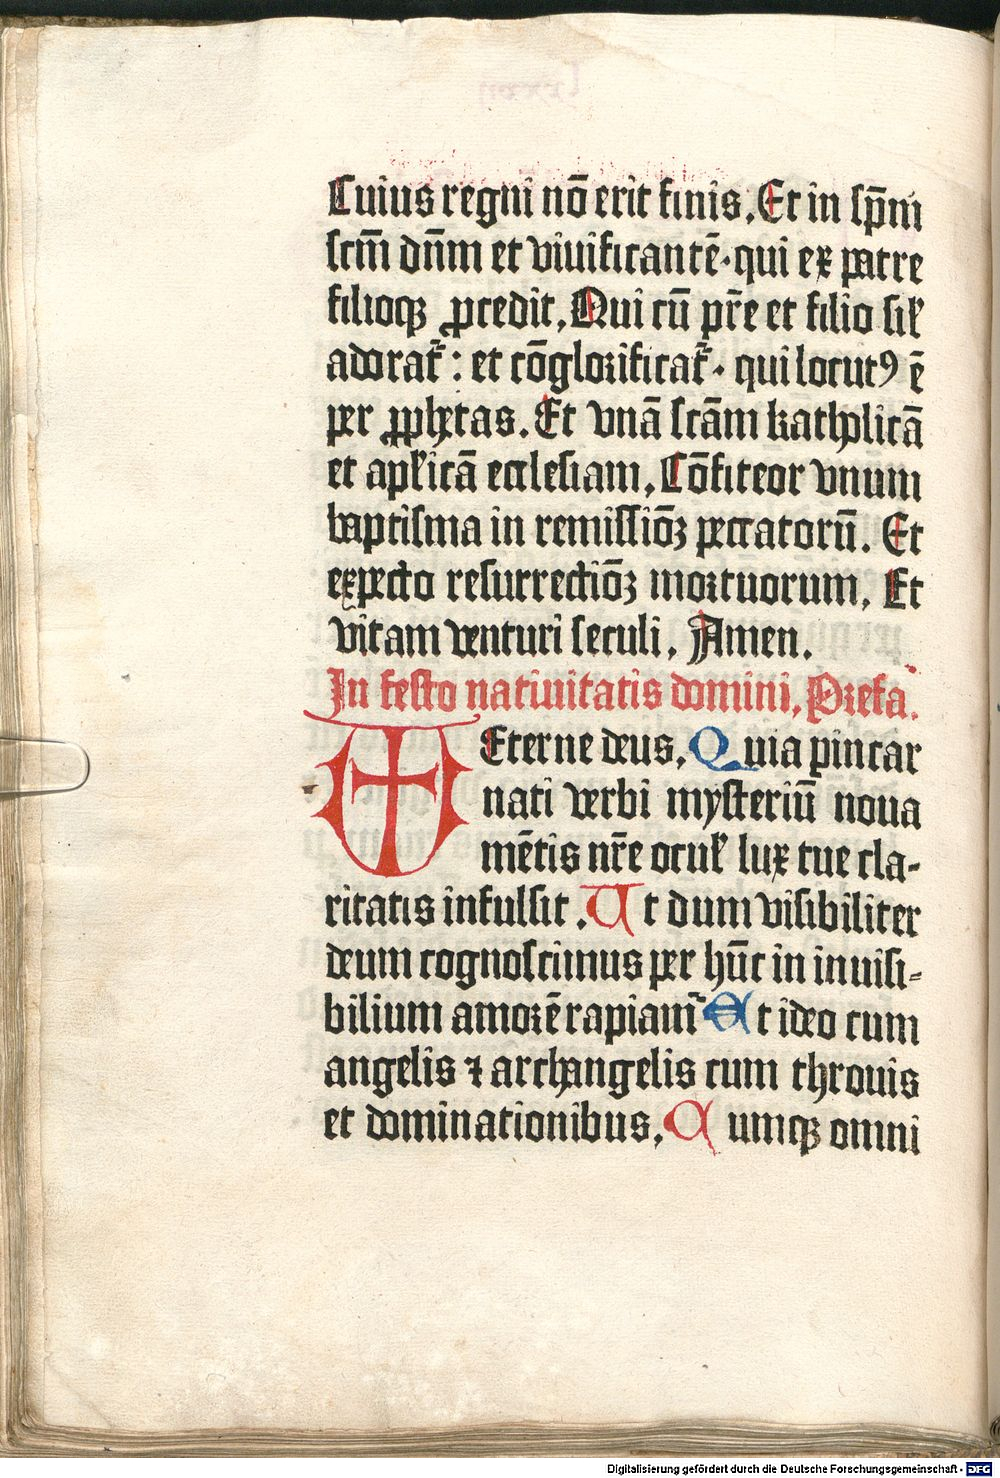 Cuius regni nō erit finis. Et in sp̄m
scm̄ dn̄m et viuificantē· qui ex patre
filioqꝫ ꝓcedit. Qui cū pr̄e et filio sil̕
adorat᷑: et cōglorificat᷑· qui locutꝰ ē
per ꝓphetas. Et vnā scām katholicā
et apl̕icā ecclesiam. Cōfiteor vnum
baptisma in remissiōꝫ peccatorū. Et
expecto resurrectiōꝫ mortuorum. Et
vitam venturi seculi. Amen.
In festo natiuitatis domini. Prefa.
Eterne deus. Quia ꝑ incar
nati verbi mysteriū noua
mētis nr̄e ocul̕ lux tue cla-
ritatis infulsit. Ut dum visibiliter
deum cognoscimus per hūc in inuisi-
bilium amorē rapiam᷑ Et ideo cum
angelis ⁊ archangelis cum thronis
et dominationibus. Cumqꝫ omni
Digitalisierung gefördert durch die Deutsche Forschungsgemeinschaft - DFG